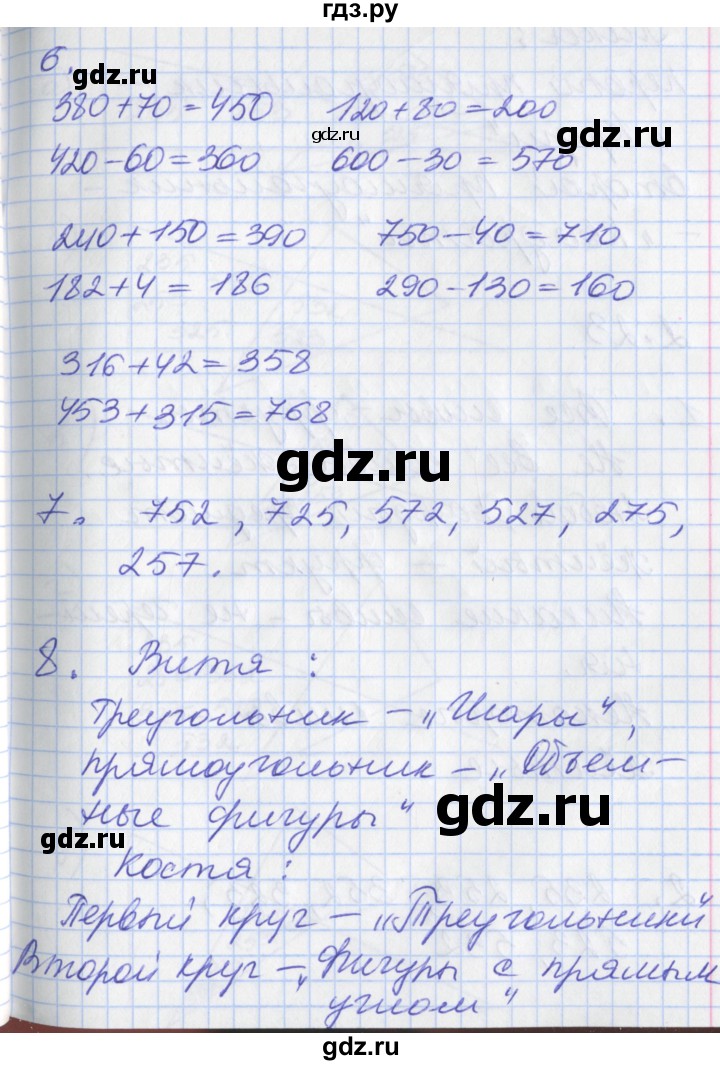 гдз.ру
6.
gdz.ru
380+70=450 120+80=200
gdz.ru
gdz.ru
420-60=360 600-30=570
240+150=390 750-40=710
gdz.ru
182+4=186 290-130=160
316+42=358
453+315=768
gdz.ru
7. 752, 725, 572, 527, 275,
257.
8. Витя:
Треугольник - „Шары",
прямоугольник - „Объем-
gdz.ru
ные фигуры"
gdz.ru
Костя:
Первый круг - „Треугольники"
Второй круг - „Фигуры с прямым
углом"
gdz.ru